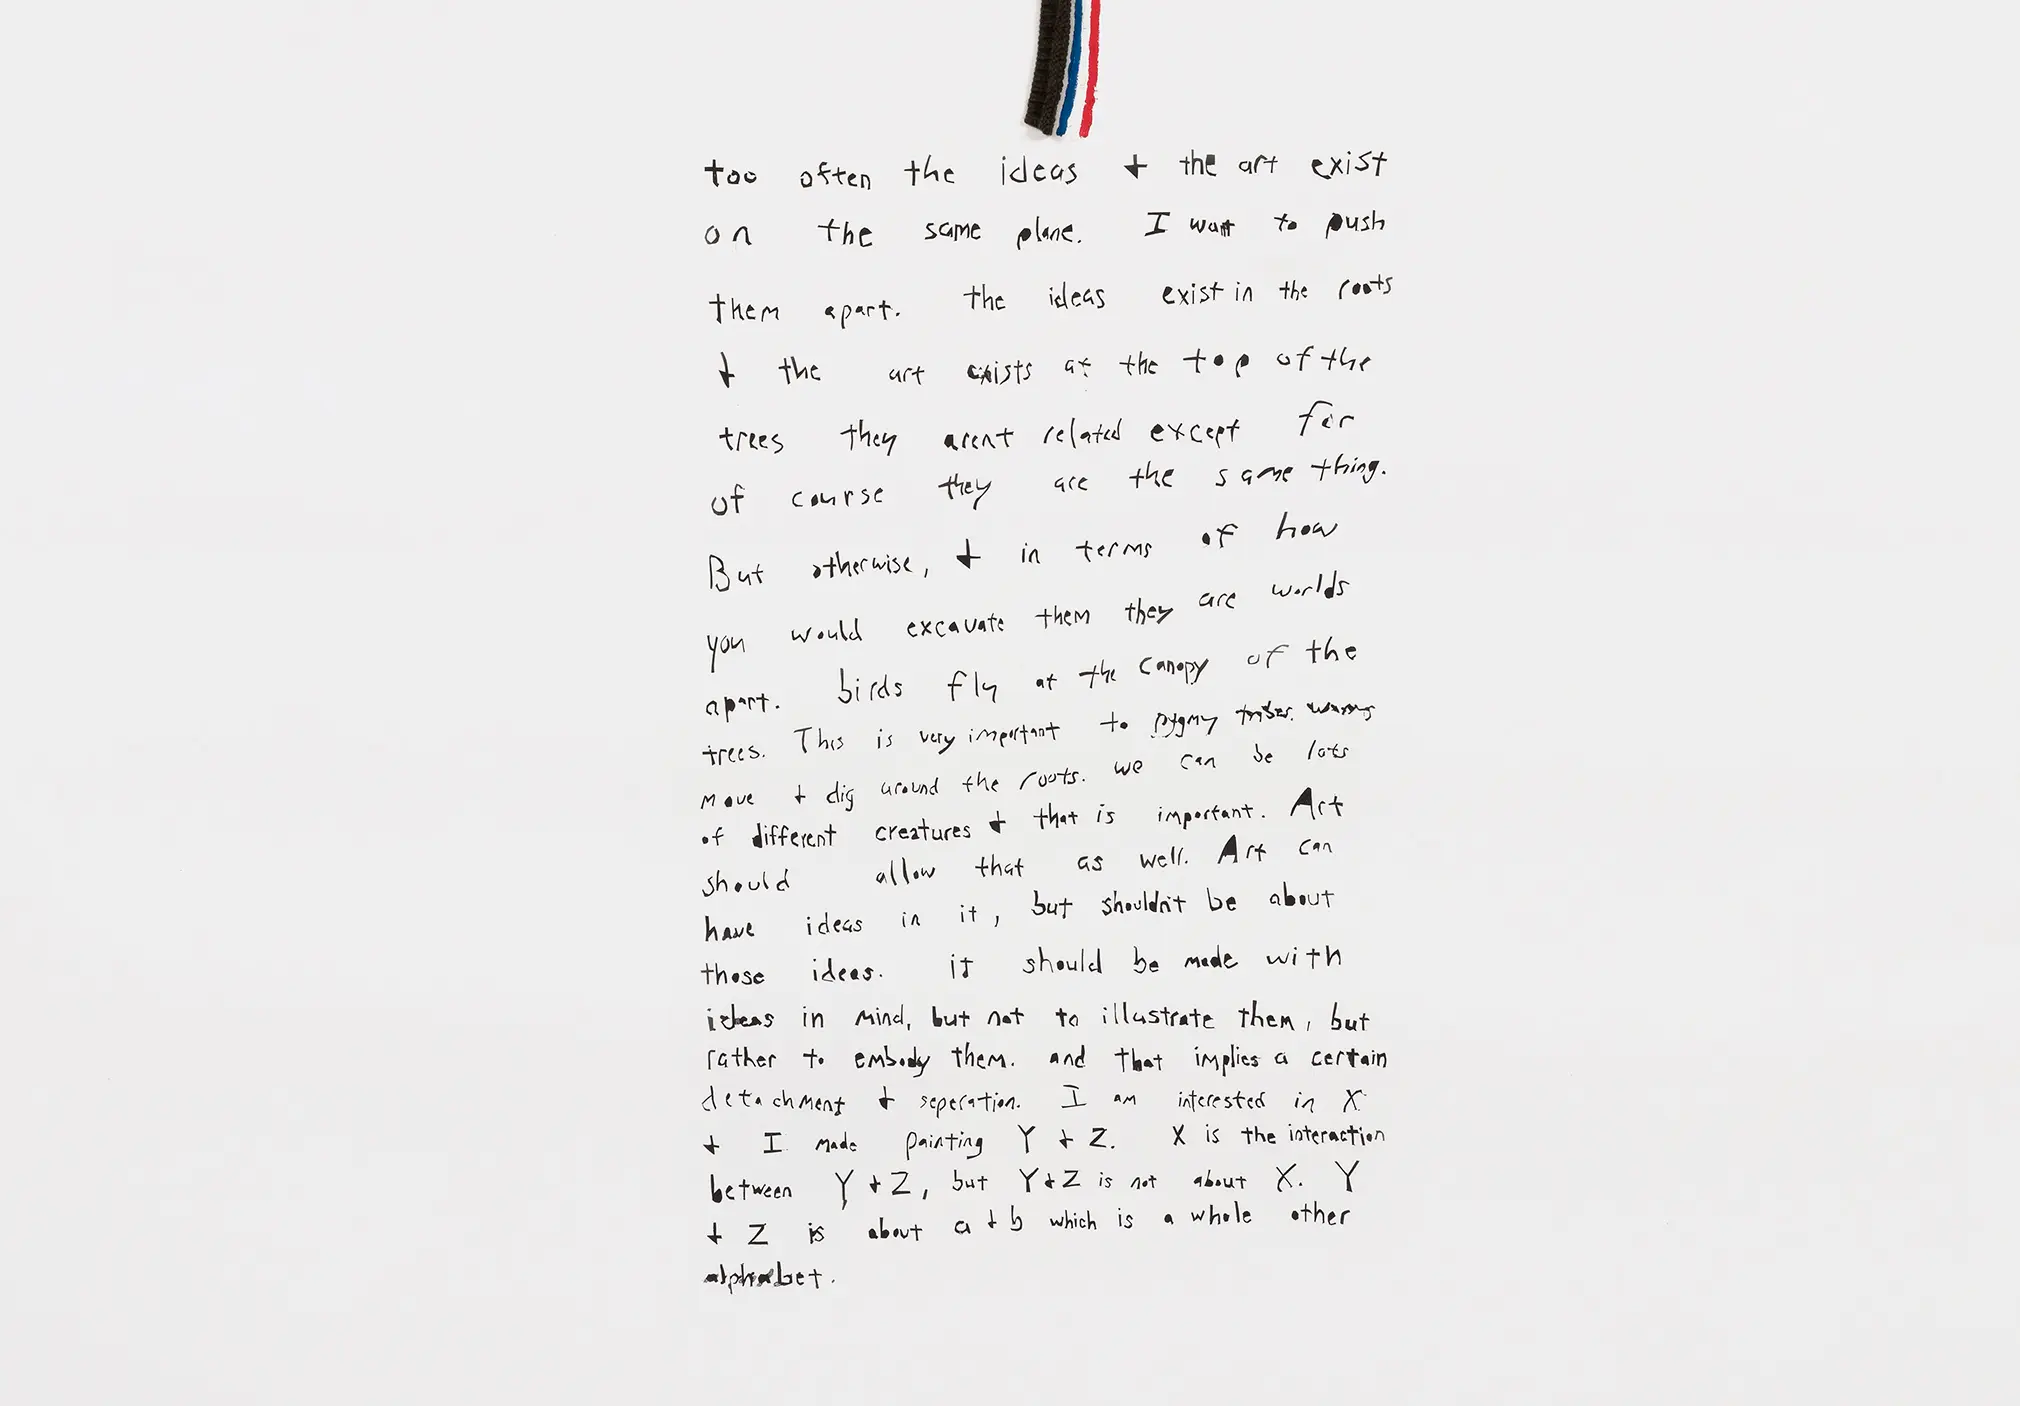 too often the ideas + the art exist
on the same plane. I want to push
them apart. the ideas exist in the roots
+ the art exists at the top of the
trees they arent related except for
of course they are the same thing.
But otherwise, + in terms of how
you would excavate them they are worlds
apart. birds fly at the canopy of the
trees. This is very important to pygmy tribes. worms
move + dig around the roots. we can be lots
of different creatures + that is important. Art
should allow that as well. Art can
have ideas in it, but shouldn't be about
those ideas. it should be made with
ideas in mind, but not to illustrate them, but
rather to embody them. and that implies a certain
detachment + seperation. I am interested in X
+ I made painting Y + Z. X is the interaction
between Y + Z, but Y + Z is not about X. Y
+ Z is about a + b which is a whole other
alphabet.